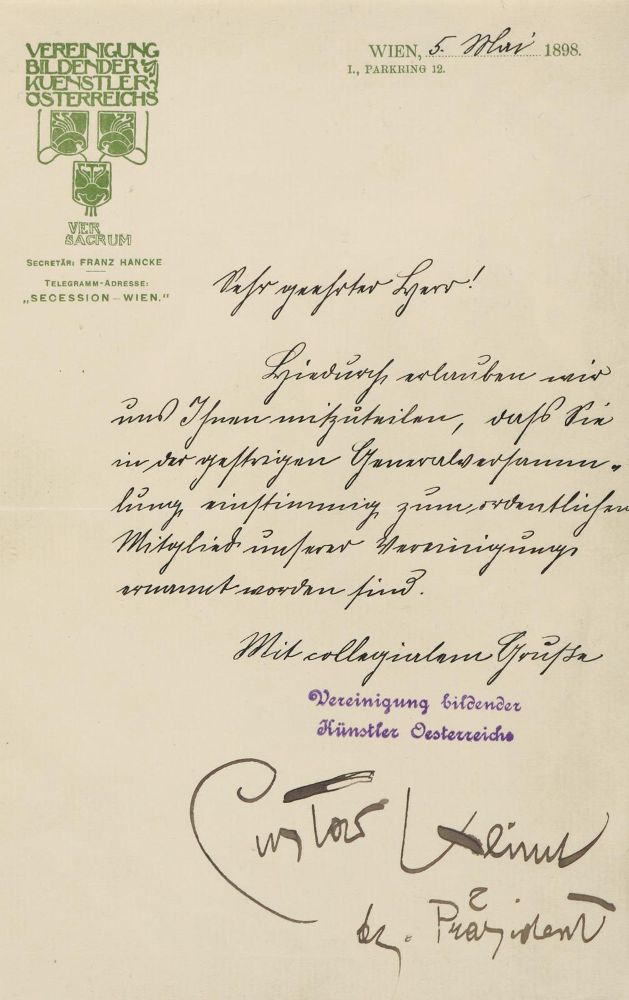 VEREINIGUNG
BILDENDER
KUENSTLER
ÖSTERREICHS
VER
SACRUM
SECRETÄR: FRANZ HANCKE
TELEGRAMM-ADRESSE:
„SECESSION – WIEN."
WIEN, 5. Mai 1898.
I., PARKRING 12.
Sehr geehrter Herr!
Hiedurch erlauben wir
uns Ihnen mitzuteilen, daß Sie
in der gestrigen Generalversamm-
lung einstimmig zum ordentlichen
Mitglied unserer Vereinigung
ernannt worden sind.
Mit collegialem Gruße
Vereinigung bildender
Künstler Oesterreichs
Gustav Klimt
dz. Präsident